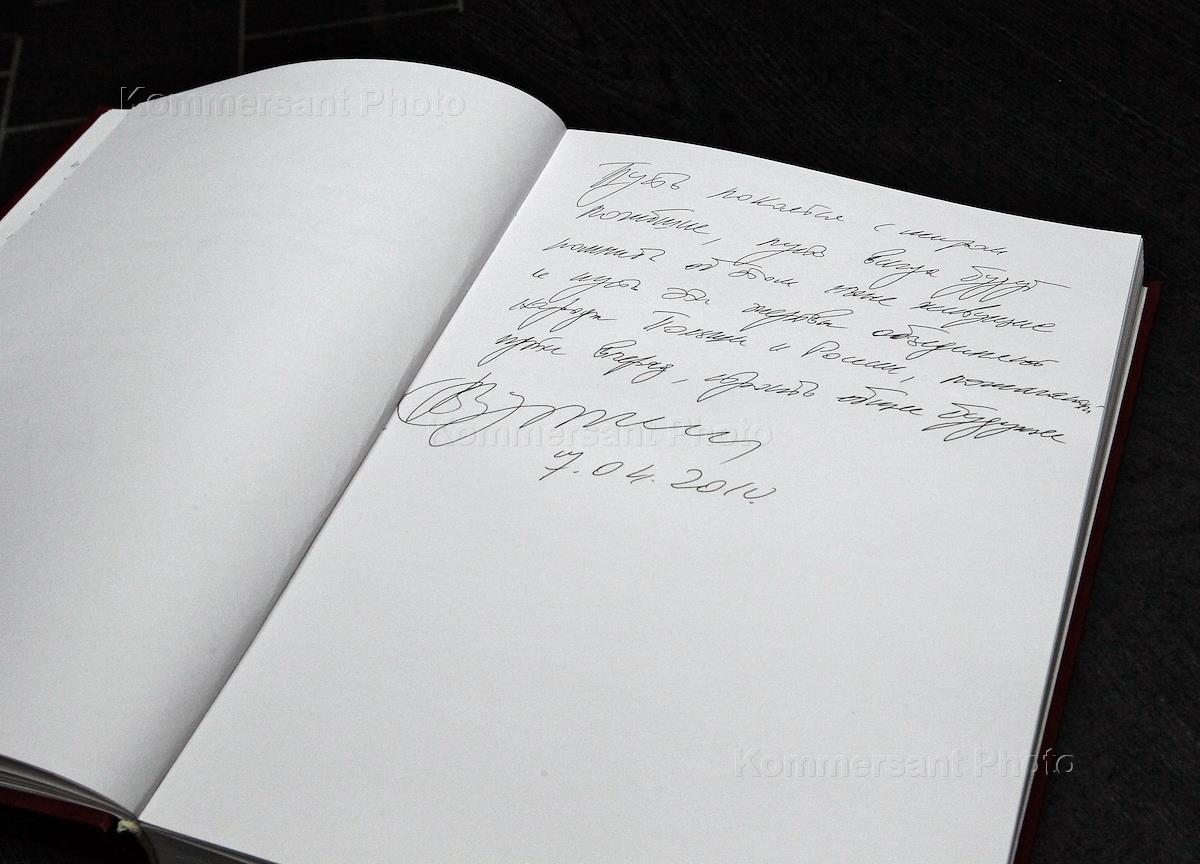 Kommersant Photo
Пусть покоятся с миром
погибшие, пусть вечно будут
помнить об этом ныне живущие
и пусть эти жертвы объединят
народы Польши и России,
идти вперед, строить общее будущее
ВПутин
Kommersant Photo
7.04.2010.
Kommersant Photo